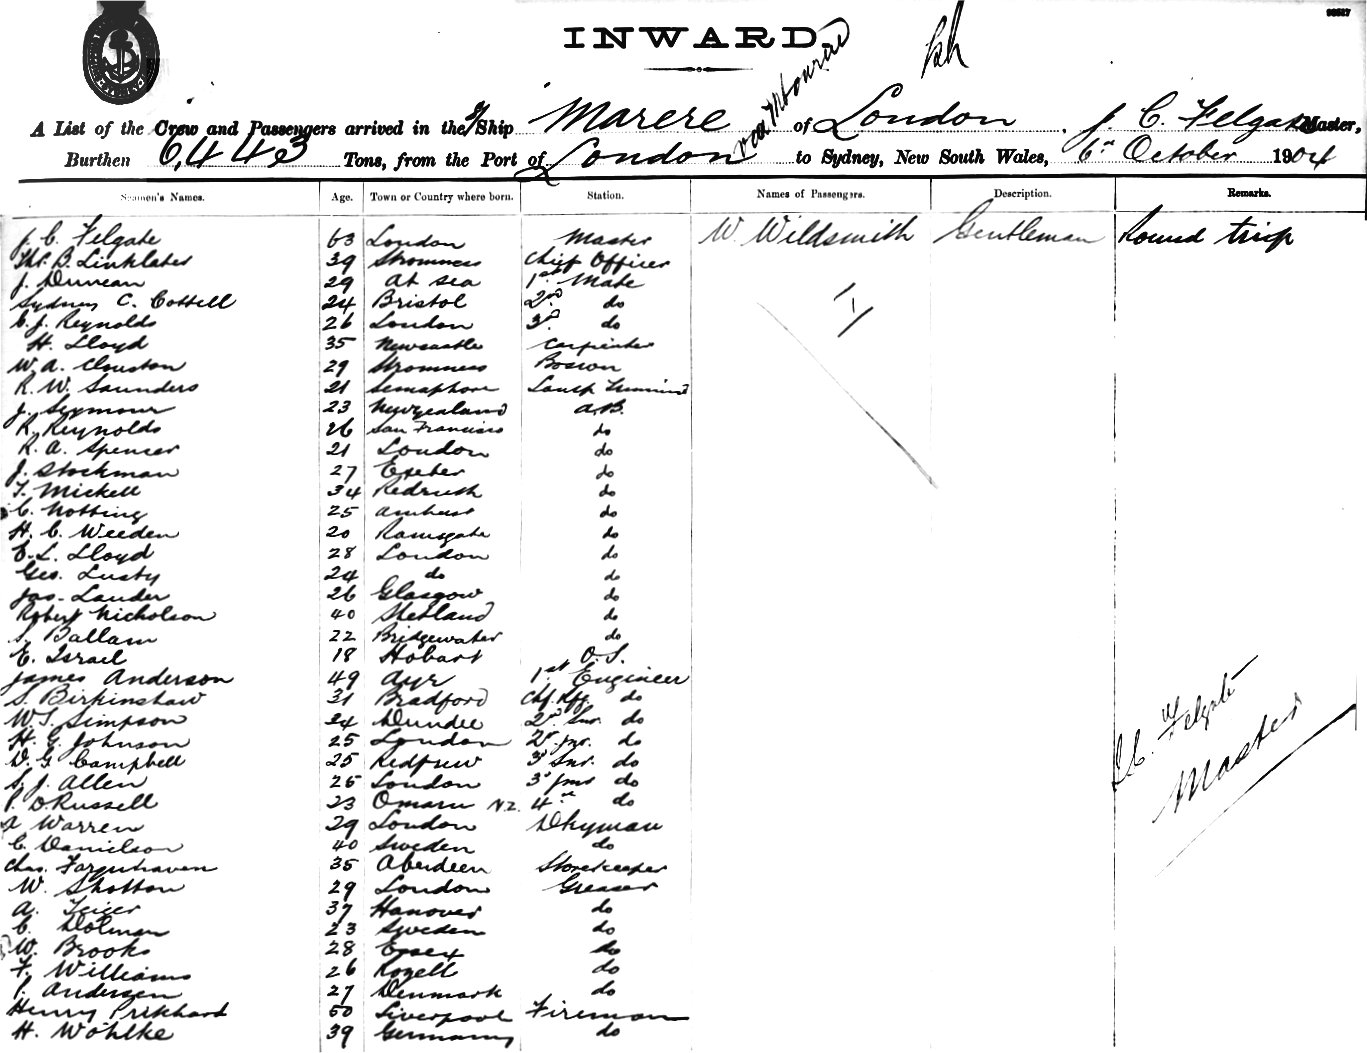 98527
INWARD
A List of the Crew and Passengers arrived in the S/Ship Marere of London J. C. Felgate Master,
Burthen 6,443 Tons, from the Port of London via to Sydney, New South Wales, 6th October 1904
Seamen's Names. Age. Town or Country where born. Station. Names of Passengers. Description. Remarks.
J. C. Felgate 63 London Master W. Wildsmith Gentleman Round trip
Thos. B. Linklater 39 Stromness Chief Officer
J. Duncan 29 At sea 1st Mate
Sydney C. Cottell 24 Bristol 2nd do
C. J. Reynolds 26 London 3rd do
H. Lloyd 35 Newcastle Carpenter
W. A. Clouston 29 Stromness Bosson
R. W. Saunders 21 Semaphore Lamp Trimmer
J. Seymour 23 New Zealand A.B.
R. Reynolds 26 San Francisco do
R. A. Spencer 21 London do
J. Stockman 27 Exeter do
T. Mickell 34 Redruth do
C. Notting 25 Amhurst do
H. C. Weeden 20 Ramsgate do
E. L. Lloyd 28 London do
Geo. Lusty 24 do do
Jas. Lauder 26 Glasgow do
Robert Nicholson 40 Shetland do
S. Ballam 22 Bridgewater do
E. Israel 18 Hobart O.S.
James Anderson 49 Ayr 1st Engineer
S. Birkinshaw 31 Bradford Chf. Rfg. do
W. T. Simpson 24 Dundee 2nd Snr. do
H. G. Johnson 25 London 2nd Jnr. do
D. G. Campbell 25 Redfern 3rd Snr. do
S. J. Allen 25 London 3rd Jnr do
P. D Russell 23 Omaru N.Z. 4th do
A Warren 29 London Dkyman
C. Danielson 40 Sweden do
Chas. Farquhaven 35 Aberdeen Storekeeper
W. Shotton 29 London Greaser
A. Teiger 37 Hanover do
C. Dolman 23 Sweden do
W. Brooks 28 Essex do
F. Williams 26 Rozell do
P. Andersen 27 Denmark do
Henry Prikhard 50 Liverpool Fireman
H. Wöhlke 39 Germany do
J. C. Felgate
Master